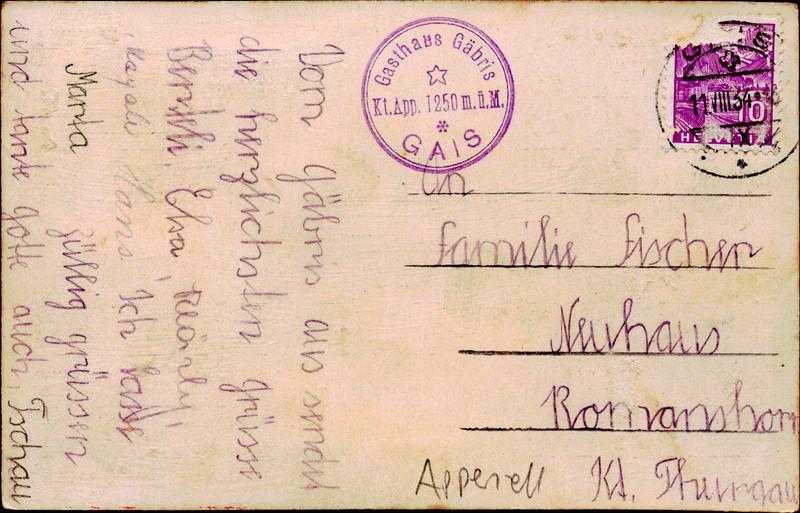 Vom Gäbris aus sendet
die herzlichsten grüsse
Bertkli Elsa,
Hans Ich lasse
Martha Züllig grüssen
und tante gotte auch, Tschau
Gasthaus Gäbris
Kt. App. 1250 m. ü. M.
GAIS
11 VIII 34
10
HELVETIA
An
Familie Fischer
Neuhaus
Romanshorn
Kt. Thurgau